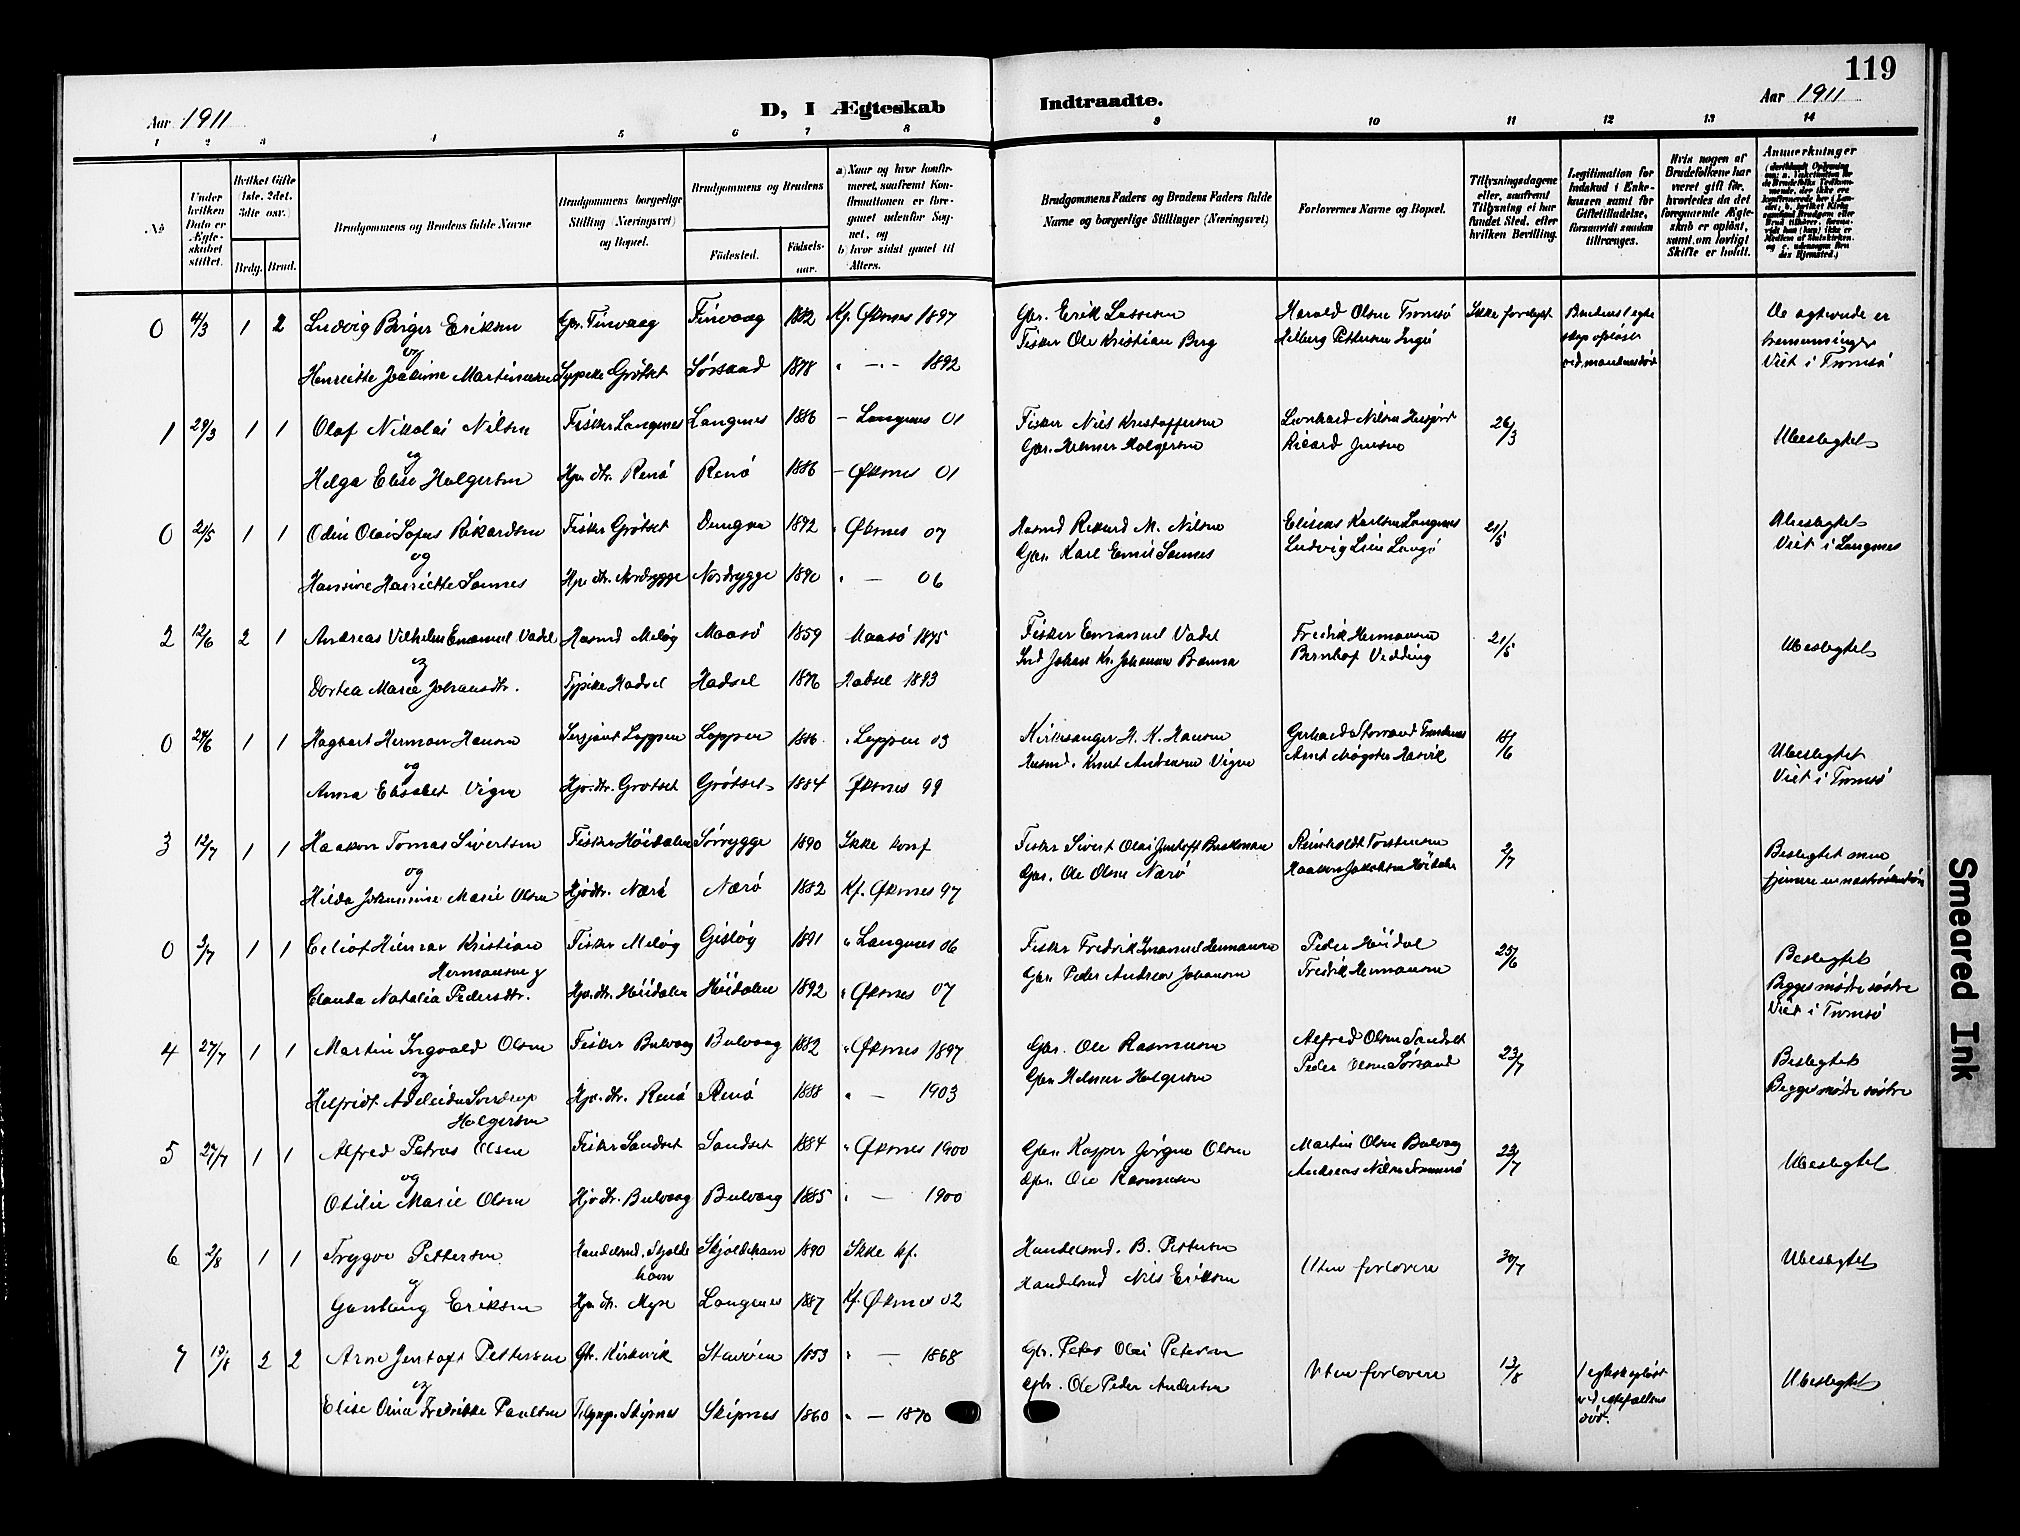 119
Aar 1911
D, I Ægteskab
Indtraadte.
Aar 1911
1 2 3 4 5 6 7 8 9 10 11 12 13 14
No
Under hvilken Dato er Ægteskabet stiftet.
Hvilket Gifte 1ste. 2det. 3die osv.)
Brdg. Brud.
Brudgommens og Brudens fulde Navne
Brudgommens borgerlige Stilling (Næringsvei) og Bopæl.
Brudgommens og Brudens
Fødested.
Fødselsaar.
a) Naar og hvor konfirmeret, saafremt Konfirmationen er foregaaet udenfor Sognet, og
b) hvor sidst gaaet til Alters.
Brudgommens Faders og Brudens Faders fulde Navne og borgerlige Stillinger (Næringsvei)
Forlovernes Navne og Bopæl.
Tillysningsdagene eller, saafremt Tillysning ei har fundet Sted, efter hvilken Bevilling.
Legitimation for Indskud i Enkekassen samt for Giftetilladelse, forsaavidt saadan tiltrænges.
Hvis nogen af Brudefolkene har været gift før, hvorledes da det foregaaende Ægteskab er opløst, samt om lovligt Skifte er holdt.
Anmerkninger
0 4/3 1 2 Ludvig Birger Eriksen Gbr. Finvaag Finvaag 1882 Kf. Øksnes 1897 Gbr. Erik Lassesen Harald Olsen Tromsø Ikke forlyst Brudens 1 egte De agtende er
og Fisker Ole Kristian Berg Hilberg Pettersen Ingø skap opløst
Henriette Joakime Martinessen Grötset Sörsand 1878 " -"- 1892 ved mandens död Viet i Tromsö
1 29/3 1 1 Olaf Nikolai Nilsen Fisker Langnes Langnes 1886 - Langnes 01 Fisker Nils Kristoffersen 26/3
og Gbr. Helmer Holgersen Rikard Jensen Ubeslegtet
Helga Elise Holgersen Hjv. dtr. Renö Renö 1886 - Øksnes 01
0 21/5 1 1 Odin Olai Sofus Rikardsen Fisker Grötset 1892 " Øksnes 07 Husmd Rikard M. Nilsen Eliseus Karlsen Langnes 21/5 Ubeslegtet
og Gbr. Karl Emil Sannes Ludvig Lien Langö Viet i Langnes
Hansine Henriette Sannes Hjv. dtr. Nordrygge Nordrygge 1890 " - 06
2 12/6 2 1 Andreas Vilhelm Emanuel Vadel Husmd Melög Maasö 1859 Maasö 1875 Fisker Emanuel Vadel Fredrik Hermansen 21/5 Ubeslegtet
og Johan Kr. Johansen Bernhof Vedding
Dortea Marie Johansdtr. Hadsel Hadsel 1876 Hadsel 1893
0 24/6 1 1 Hagbart Herman Hansen Sersjant Loppen Loppen 1886 " Loppen 03 Kirkesanger H. K. Hansen Gerhard 18/6 Ubeslegtet
og Husmd. Knut Andersen Vigen Viet i Tromsö
Anna Elisabet Vigen Hjv. dtr. Grötset Grötset 1884 Øksnes 99
3 12/7 1 1 Haakon Tomas Sivertsen Fisker Höidalen Sörrygge 1890 Ikke konf Fisker Sivert Olai Jentoft Reinholdt Torstensen 2/7 Beslegtet men
og Gbr. Ole Olsen Nærö Haakon Jakobsen Höidalen fjernere en næstsöskendebörn
Hilda Johannine Marie Olsen Hjv dtr. Nærö Nærö 1882 Kf. Øksnes 97
0 2/7 1 1 Eeliot Hilmar Kristian Fisker Melög Gislög 1891 " Langnes 06 Fisker Fredrik Emanuel Hermansen Peder Höidal 25/6 Beslegtet
Hermansen og Gbr. Peder Andreas Johansen Fredrik Hermansen Begges mödre söstre
Claudia Natalia Pedersdtr. Hjv. dtr. Höidalen Höidalen 1892 " Øksnes 07 Viet i Tromsö
4 27/7 1 1 Martin Ingvald Olsen Fisker Bulvaag Bulvaag 1882 " Øksnes 1897 Gbr. Ole Rasmussen Alfred Olsen Sandset 23/7 Beslegtet
og Gbr. Helmer Holgersen Peder Olsen Sörsand Begges mödre söstre
Helfridt Adeleide Sverdrup Hjv. dtr. Renö Renö 1888 " - 1903
Holgersen
5 27/7 1 1 Alfred Petrus Olsen Fisker Sandset Sandset 1884 " Øksnes 1900 Gbr. Kasper Jörgen Olsen Martin Olsen Bulvaag 23/7 Ubeslegtet
og Gbr. Ole Rasmussen Andreas Nilsen
Otilie Marie Olsen Hjv dtr. Bulvaag Bulvaag 1885 " - 1900
6 2/8 1 1 Trygve Pettersen Handelsmd. Skjolde Skjoldehavn 1890 Ikke kf. Handelsmd. B. Pettersen Uten forlovere 30/7 Ubeslegtet
og havn Handelsmd Nils Eriksen
Gunlaug Eriksen Hjv. dtr. Myre Langenes 1887 Kf. Øksnes 02
7 13/8 2 2 Arne Jentoft Pettersen Gbr. Kirkevik Stavöen 1853 " - 1868 Gbr. Peter Olai Petersen Uten forlovere 13/8 1 egteskap löst Ubeslegtet
og Gbr. Ole Peder Andersen ved egtefællens
Elise Oline Fredrikke Paulsen Skipnes Skipnes 1860 " - 1870 död.
Smeared Ink